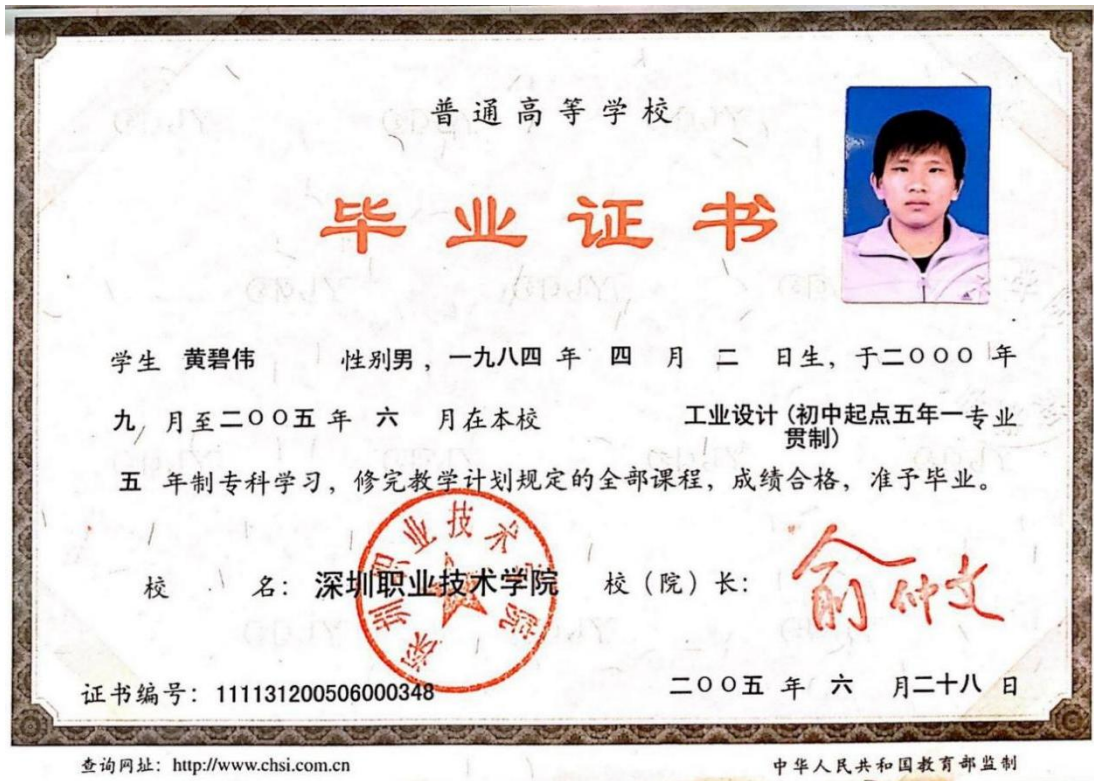 普通高等学校
毕业证书
学生 黄碧伟 性别男，一九八四 年 四 月 二 日生，于二〇〇〇 年
九 月至二〇〇五 年 六 月在本校 工业设计(初中起点五年一贯制)专业
五 年制专科学习，修完教学计划规定的全部课程，成绩合格，准予毕业。
校 名：深圳职业技术学院 校（院）长：俞仲文
深圳职业技术学院
证书编号：111131200506000348 二〇〇五 年 六 月二十八 日
查询网址：http://www.chsi.com.cn 中华人民共和国教育部监制